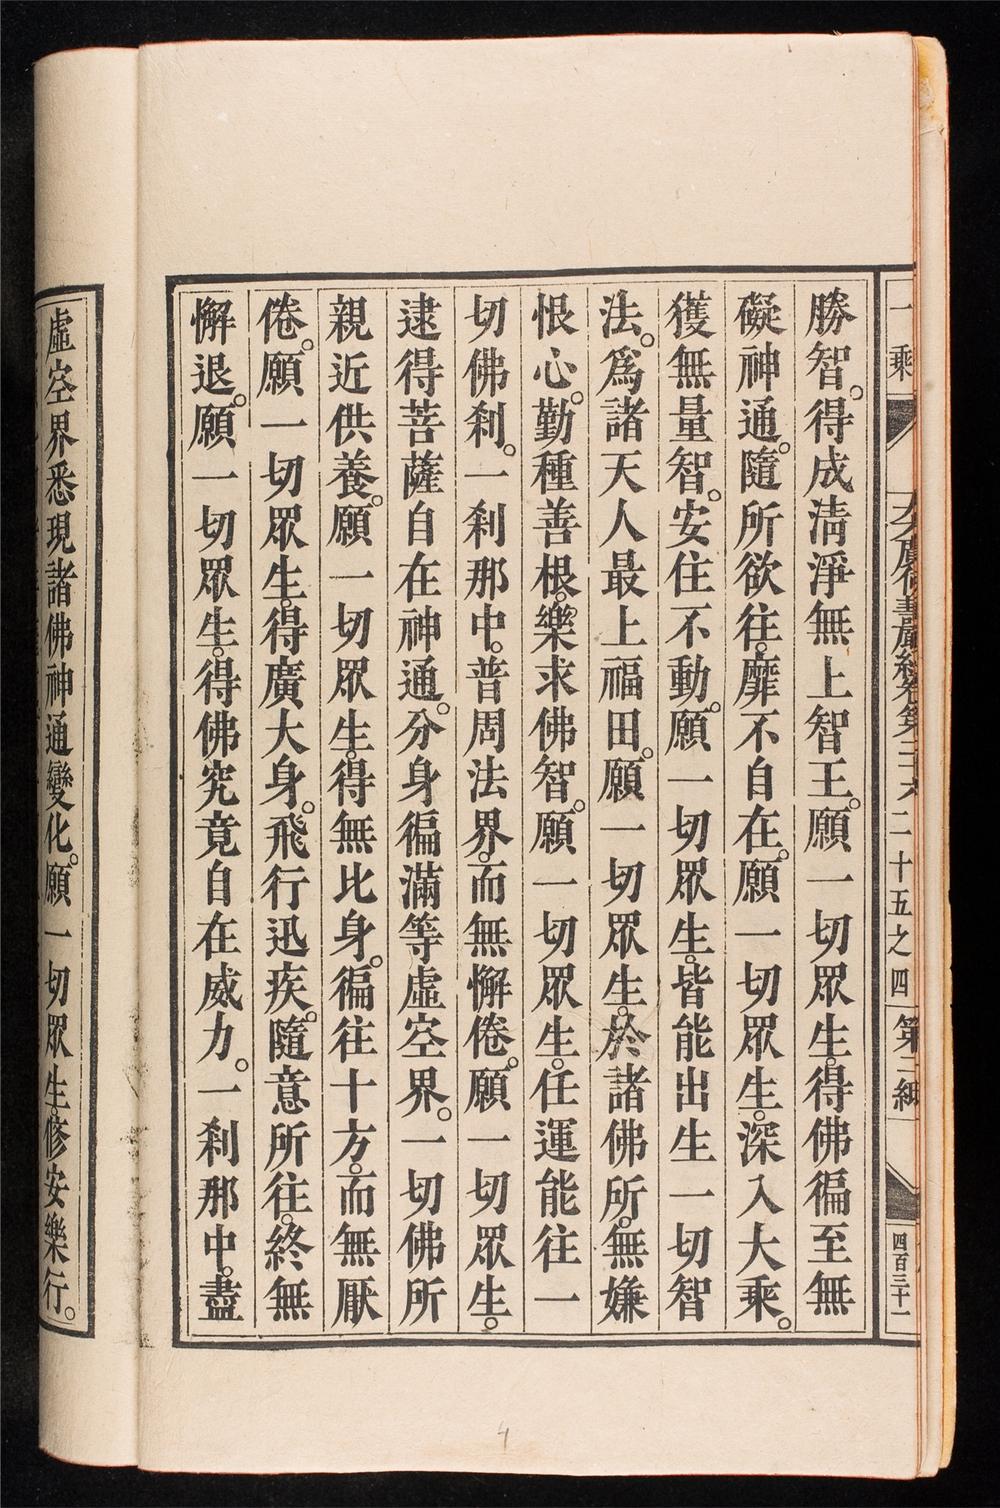 一乘
大方廣佛華嚴經卷第二十六
二十五之四
第二紙
四百三十一
勝智。得成清淨無上智王。願一切眾生。得佛徧至無
礙神通。隨所欲往。靡不自在。願一切眾生。深入大乘。
獲無量智。安住不動。願一切眾生。皆能出生一切智
法。爲諸天人最上福田。願一切眾生。於諸佛所。無嫌
恨心。勤種善根。樂求佛智。願一切眾生。任運能往一
切佛刹。一刹那中。普周法界。而無懈倦。願一切眾生。
逮得菩薩自在神通。分身徧滿等虛空界。一切佛所
親近供養。願一切眾生。得無比身。徧往十方。而無厭
倦。願一切眾生。得廣大身。飛行迅疾。隨意所往。終無
懈退。願一切眾生。得佛究竟自在威力。一刹那中。盡
虛空界悉現諸佛神通變化。願一切眾生。修安樂行。
4